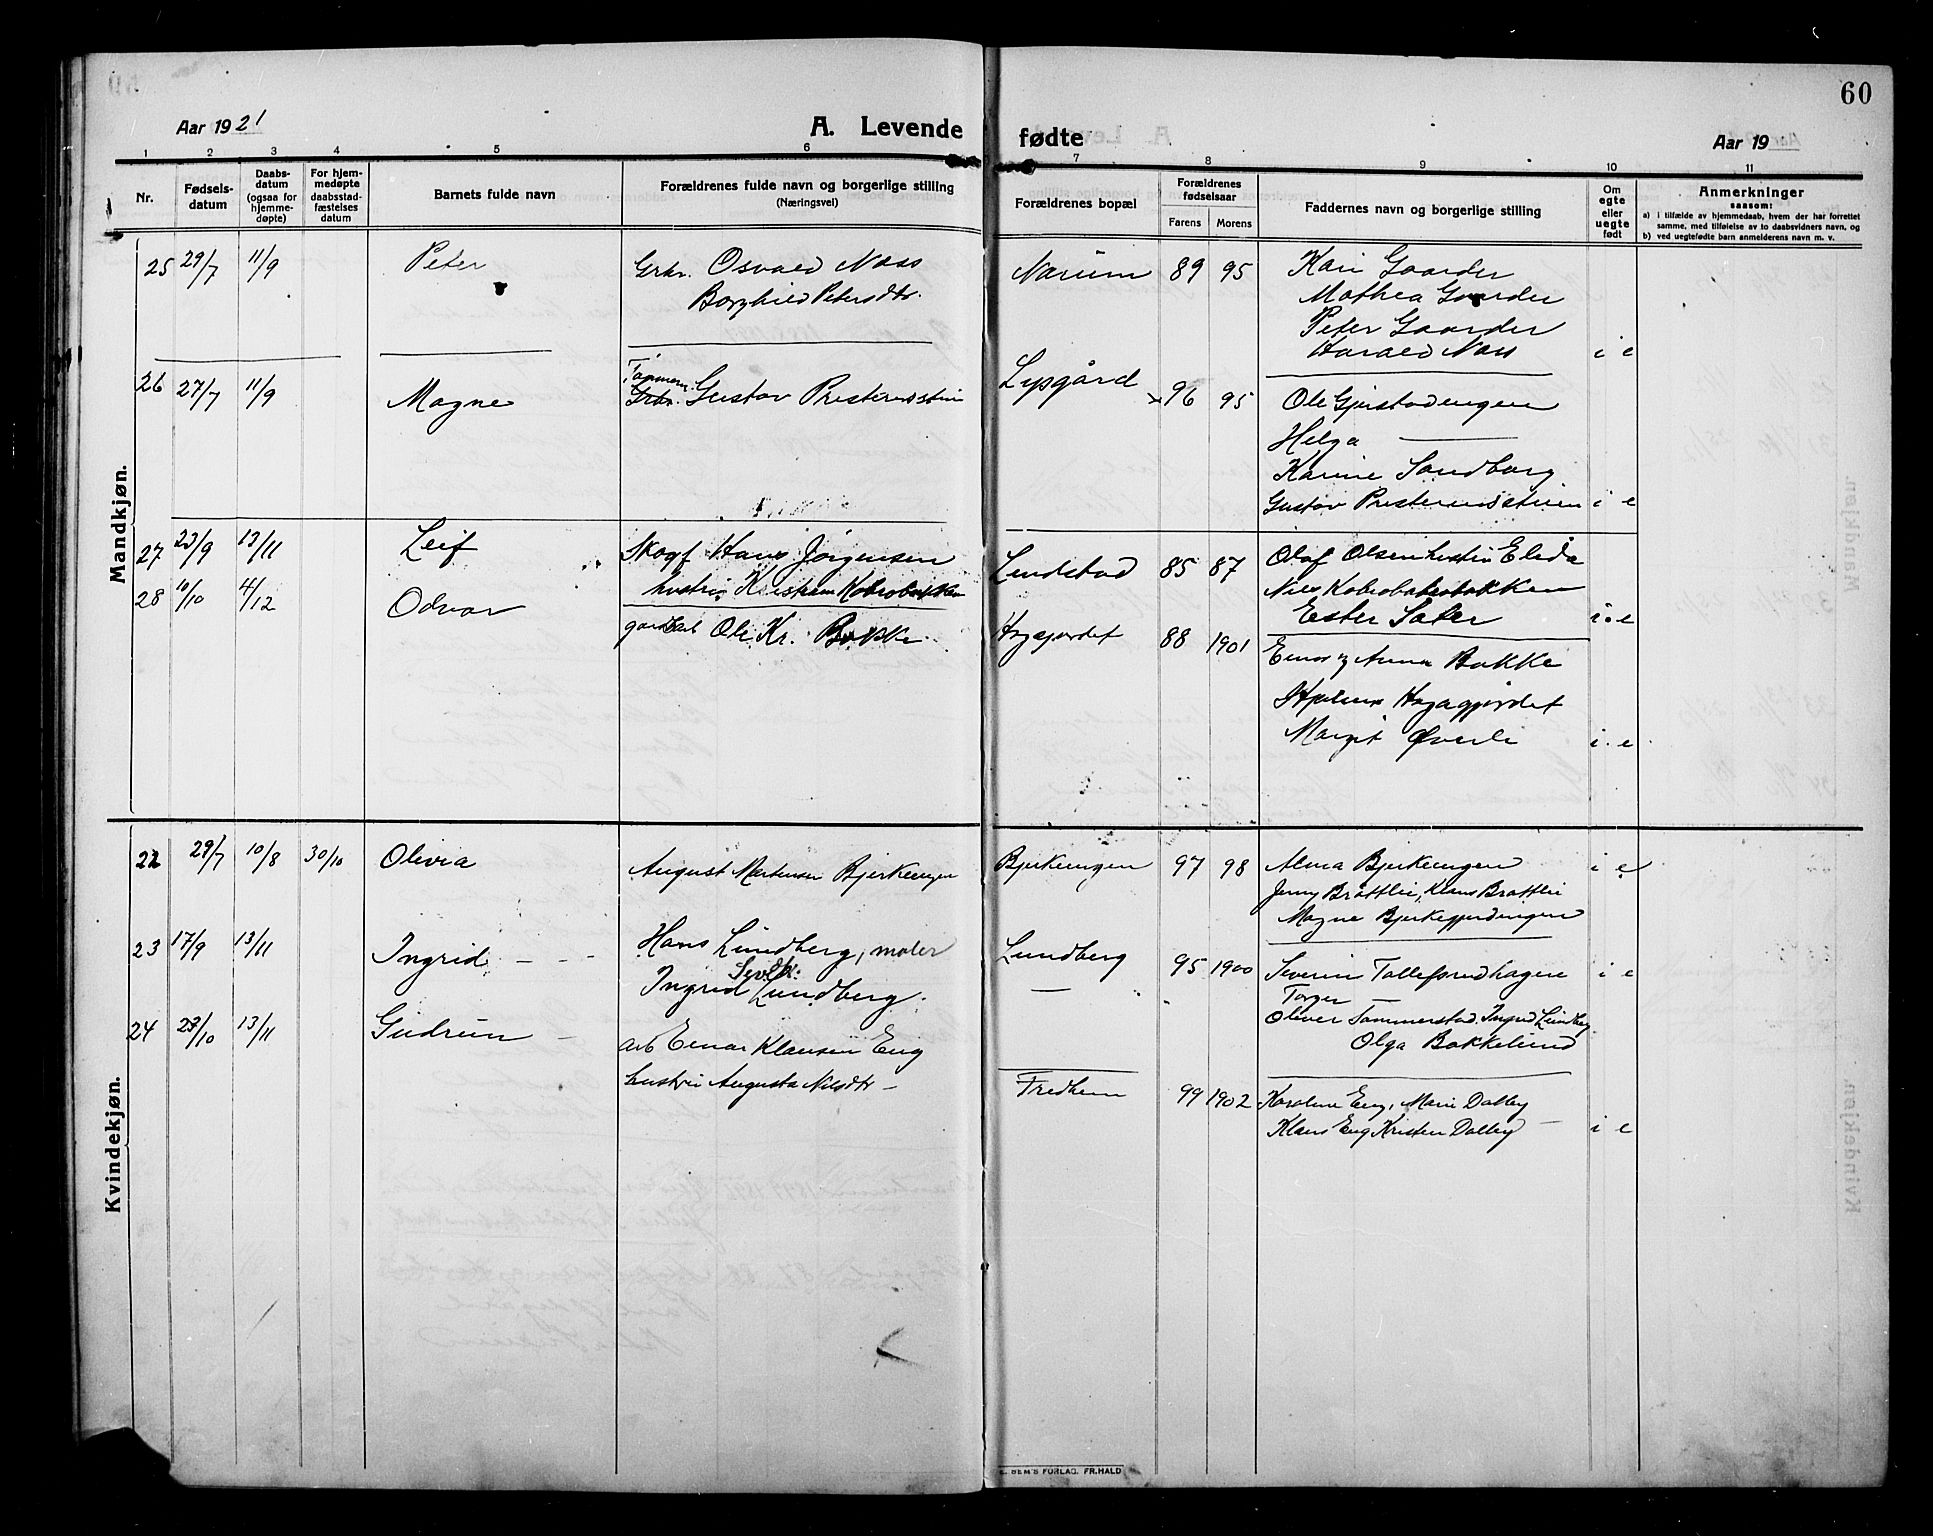 60
Aar 1921
A. Levende fødte
Aar 19
1 2 3 4 5 6 7 8 9 10 11
Nr.
Fødsels-
datum
Daabs-
datum
(ogsaa for
hjemme-
døpte)
For hjem-
medøpte
daabsstad-
fæstelses
datum
Barnets fulde navn
Forældrenes fulde navn og borgerlige stilling
(Næringsvei)
Forældrenes bopæl
Forældrenes
fødselsaar
Farens Morens
Faddernes navn og borgerlige stilling
Om
egte
eller
uegte
født
Anmerkninger
saasom:
a) i tilfælde av hjemmedaab, hvem der har forrettet
samme, med tilføielse av to daabsvidners navn, og
b) ved uegtefødte barn anmelderens navn m. v.
Mandkjøn.
25 29/7 11/9 Peter Grbr. Osvald Næss Narum 89 95 Kari Gaarder
Borghild Petersdtr. Mathea Gaarder
Peter Gaarder
Harald Næss i e
26 27/7 11/9 Magne Tømmerm. Gustav Lysgård 96 95 Ole Gjerstadengen
Helga —
Karine Sandberg
Gustav i e
27 23/9 13/11 Leif Skogf Hans Jørgensen Lundstad 85 87 Olaf Olsen hustru
hustru Nils
Ester i e
28 10/10 4/12 Odvar Ole Kr. Bakke 88 1901 Anna Bakke
Hagagjordet
Margit Øverli i e
Kvindekjøn.
22 29/7 10/8 30/10 Olivia August Martinsen Bjerkeengen Bjerkeengen 97 98 Alma Bjerkeengen i e
Jenny Bråttlie, Klaus Brattlie
Magne
23 17/9 13/11 Ingrid - - - Hans Lundberg, maler Lundberg 95 1900 Severin i e
Ingrid Lundberg. — Torger —
Oliver Sammerstad. Ingrid Lundberg
Olga Bakkelund
24 23/10 13/11 Gudrun - arb Einar Klausen Eng Fredheim 99 1902 Karoline Eng, Marie Dalby
hustru Augusta Nilsdtr - Klaus Eng Kristen Dalby — i e
BEM'S FORLAG. FR. HALD